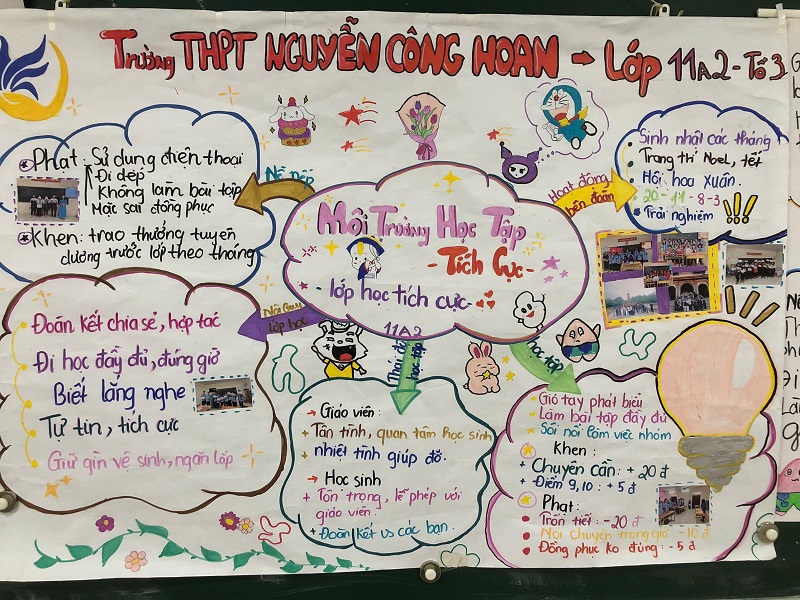 Trường THPT NGUYỄN CÔNG HOAN - Lớp 11A2 - Tổ 3
Môi Trường Học Tập
- Tích Cực -
- lớp học tích cực -
11A2
Nề nếp
Phạt: Sử dụng điện thoại
Đi dép
Không làm bài tập
Mặc sai đồng phục
Khen: trao thưởng tuyên
dương trước lớp theo tháng
Hoạt động
bên đoàn
Sinh nhật các tháng
Trang trí Noel, tết
Hội hoa xuân.
20 - 11 - 8 - 3
Trải nghiệm
Nội quy
lớp học
Đoàn kết chia sẻ, hợp tác
Đi học đầy đủ, đúng giờ
Biết lắng nghe
Tự tin, tích cực
Giữ gìn vệ sinh, ngăn lớp
Thái độ
học tập
→ Giáo viên:
+ Tận tình, quan tâm học sinh
+ nhiệt tình giúp đỡ.
→ Học sinh
+ Tôn trọng, lễ phép với
giáo viên.
+ Đoàn kết vs các bạn.
học tập
Giơ tay phát biểu
Làm bài tập đầy đủ
Sôi nổi làm việc nhóm
Khen:
+ Chuyên cần: + 20 đ
+ Điểm 9, 10: + 5 đ
Phạt:
Trốn tiết: - 20 đ
Nói chuyện trong giờ - 10 đ
Đồng phục ko đúng: - 5 đ